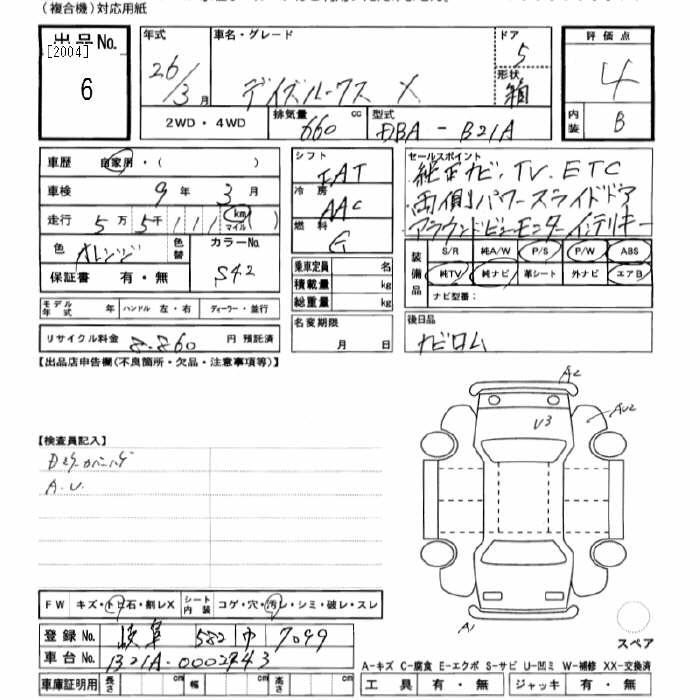 (複合機)対応用紙
出品No. 年式 車名・グレード ドア 5 評価点
[2004] 26/3月 デイズルークス X 形状 箱 4
6 2WD・4WD 排気量 660 cc 型式 DBA-B21A 内装 B
車歴 自家用・( )
車検 9年 3月
走行 5万 5千 111 (km マイル)
色 オレンジ 色替 カラーNo. S42
保証書 有・無
モデル年式 年 ハンドル 左・右 ディーラー・並行
リサイクル料金 8,860 円 預託済
シフト IAT
冷房 AAC
燃料 G
乗車定員 名
積載量 kg
総重量 kg
名変期限
月 日
セールスポイント
純正ナビ、TV、ETC
両側パワースライドドア
アラウンドビューモニター インテリキー
装備品 S/R 純A/W P/S P/W ABS
純TV 純ナビ 革シート 外ナビ エアB
ナビ型番:
後日品
ナビロム
【出品店申告欄(不良箇所・欠品・注意事項等)】
【検査員記入】
A.U.
A2
AU2
U3
A1
スペア
FW キズ・トビ石・割レX シート内装 コゲ・穴・汚レ・シミ・破レ・スレ
登録No. 岐阜 582 7099
車台No. B21A-0002943
車庫証明用 長さ cm 幅 cm 高さ cm
A-キズ C-腐食 E-エクボ S-サビ U-凹ミ W-補修 XX-交換済
工具 有・無 ジャッキ 有・無